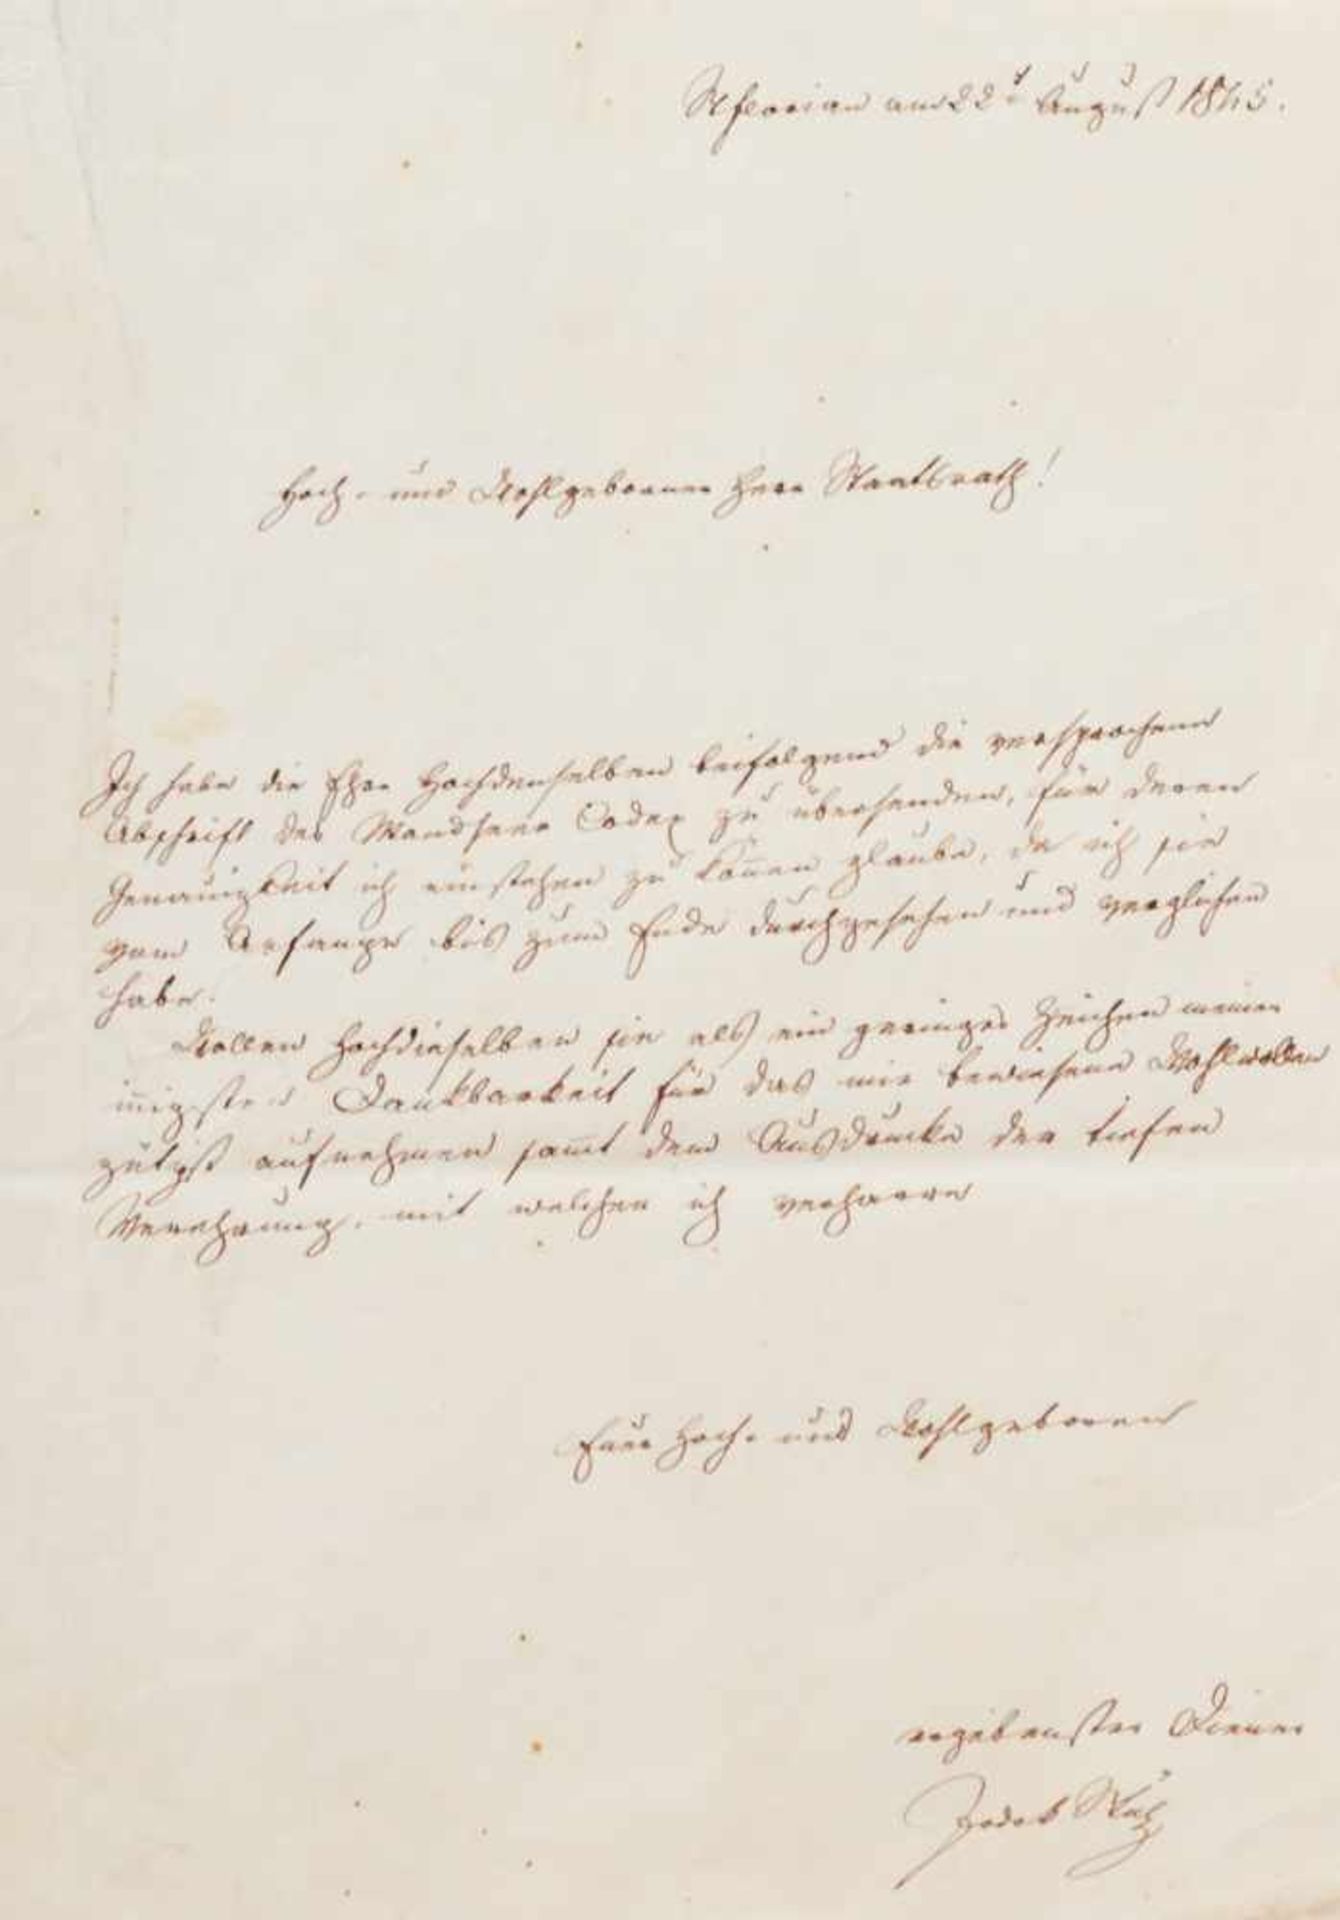 St florian am 22t August 1845.
Hoch- und Wohlgeborner Herr Staatsrath!
Ich habe die Ehre Hochdenselben beifolgend die versprochene
Abschrift des Mondseer Codex zu übersenden, für deren
Genauigkeit ich einstehen zu kon̅en glaube, da ich sie
vom Anfange bis zum Ende durchgesehen und verglichen
habe.
Wollen Hochdieselben sie als ein geringes Zeichen meiner
in̅igsten Dankbarkeit für das mir bewiesene Wohlwollen
gütigst aufnehmen sam̅t dem Ausdrucke der tiefen
Verehrung, mit welcher ich verharre
Euer Hoch- und Wohlgeboren
ergebenster Diener
Jodok Stülz